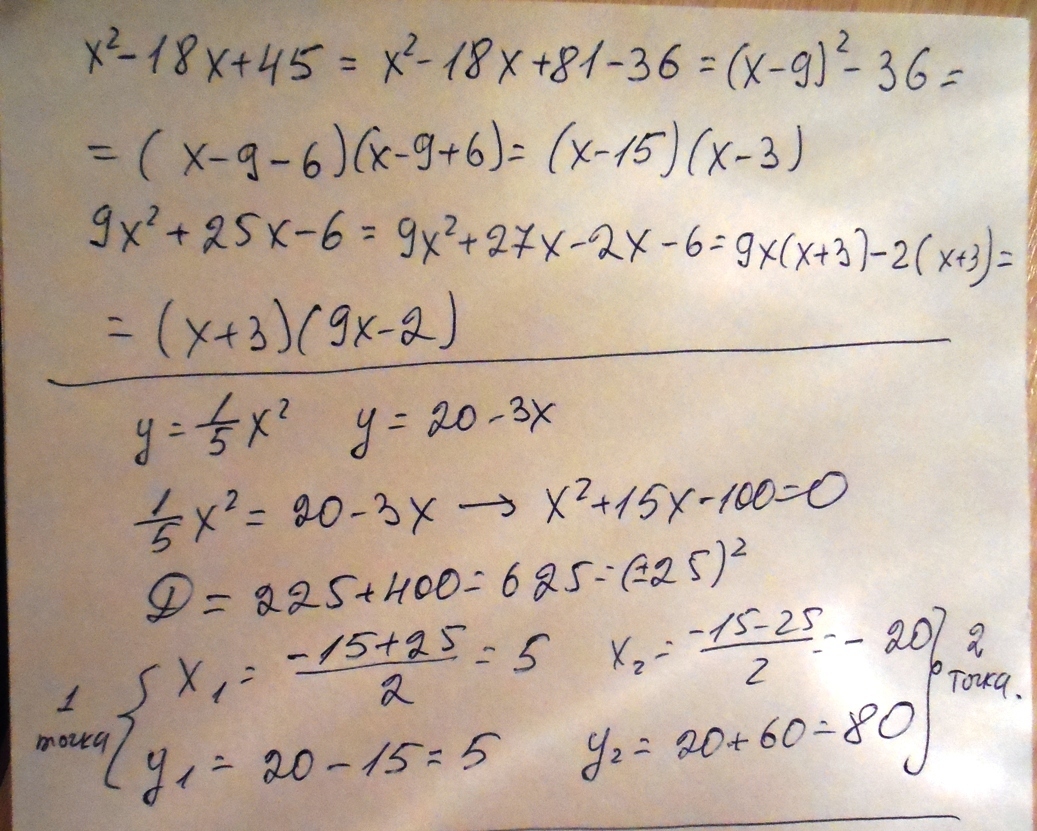 x²-18x+45 = x²-18x+81-36 = (x-9)²-36 =
= (x-9-6)(x-9+6) = (x-15)(x-3)
9x²+25x-6 = 9x²+27x-2x-6 = 9x(x+3)-2(x+3) =
= (x+3)(9x-2)
y = 1/5 x² y = 20-3x
1/5 x² = 20-3x → x²+15x-100=0
D = 225+400=625=(±25)²
1 точка { x₁ = (-15+25)/2 = 5 x₂ = (-15-25)/2 = -20 } 2 точка.
y₁ = 20-15=5 y₂ = 20+60=80